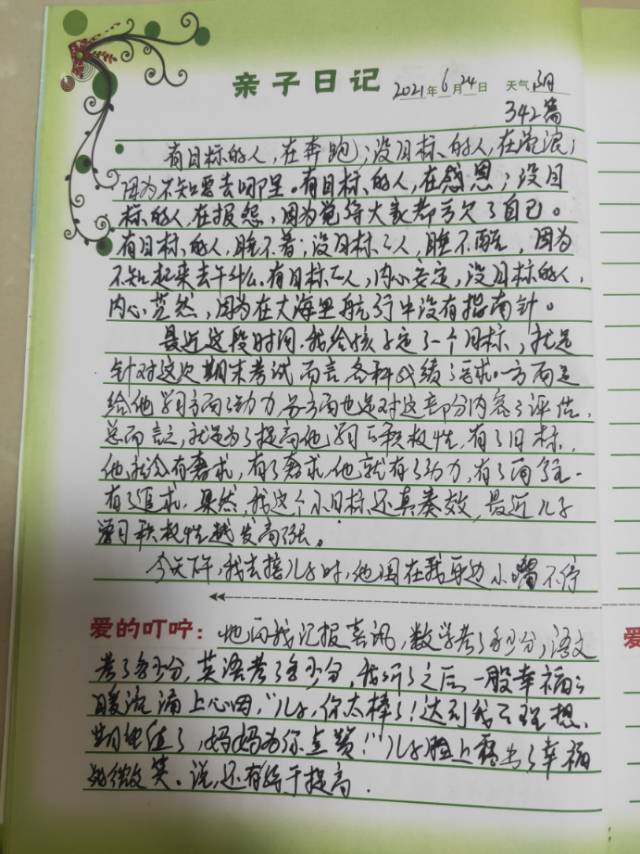 亲子日记 2021年6月24日 天气 阴
342篇
有目标的人,在奔跑;没目标的人,在流浪;
因为不知要去哪里。有目标的人,在感恩;没目
标的人,在报怨,因为觉得大家都亏欠了自己。
有目标的人,睡不着;没目标的人,睡不醒,因为
不知起来去干什么。有目标的人,内心安定,没目标的人,
内心茫然,因为在大海里航行中没有指南针。
最近这段时间,我给孩子定了一个目标,就是
针对这次期末考试而言各科成绩的要求。一方面是
给他学习方面的动力,另方面也是对这部分内容的评估,
总而言之,就是为了提高他学习的积极性,有了目标,
他就会有需求,有了需求,他就有了动力,有了
有了追求。果然,我这个小目标还真奏效,最近儿子
学习积极性越发高强。
今天下午,我去接儿子时,他围在我身边小嘴不停
爱的叮咛:地向我汇报喜讯,数学考了多少分,语文
考了多少分,英语考了多少分,我听了之后一股幸福的
暖流涌上心田,“儿子,你太棒了!达到我的理想
期值了,妈妈为你点赞!”儿子脸上露出了幸福
的微笑、说,还有待于提高.